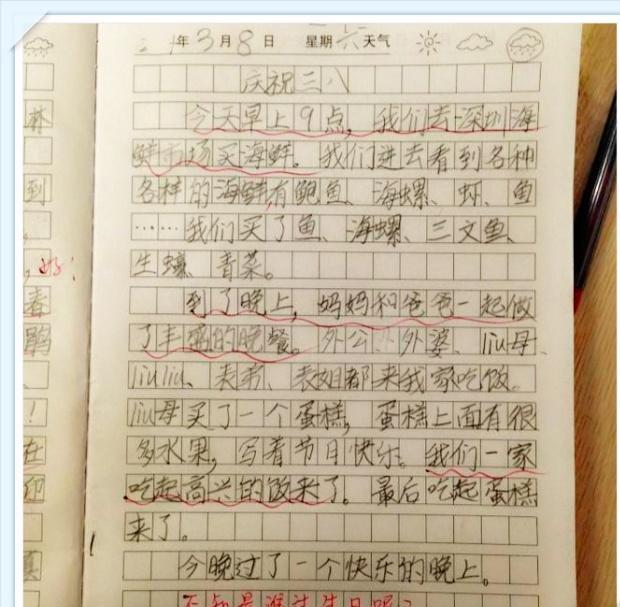 年3月8日 星期六 天气
庆祝三八
今天早上9点，我们去深圳海
鲜市场买海鲜。我们进去看到各种
各样的海鲜，有鲍鱼、海螺、虾、鱼
……我们买了鱼、海螺、三文鱼、
生蠔、青菜。
到了晚上，妈妈和爸爸一起做
了丰盛的晚餐。外公、外婆、liu母、
liuliu、表弟、表姐都来我家吃饭。
liu母买了一个蛋糕，蛋糕上面有很
多水果，写着节日快乐。我们一家
吃起高兴的饭来了。最后吃起蛋糕
来了。
今晚过了一个快乐的晚上。
不知是谁过生日呢？
林
到
好！
春
鹃
！
在
印
真